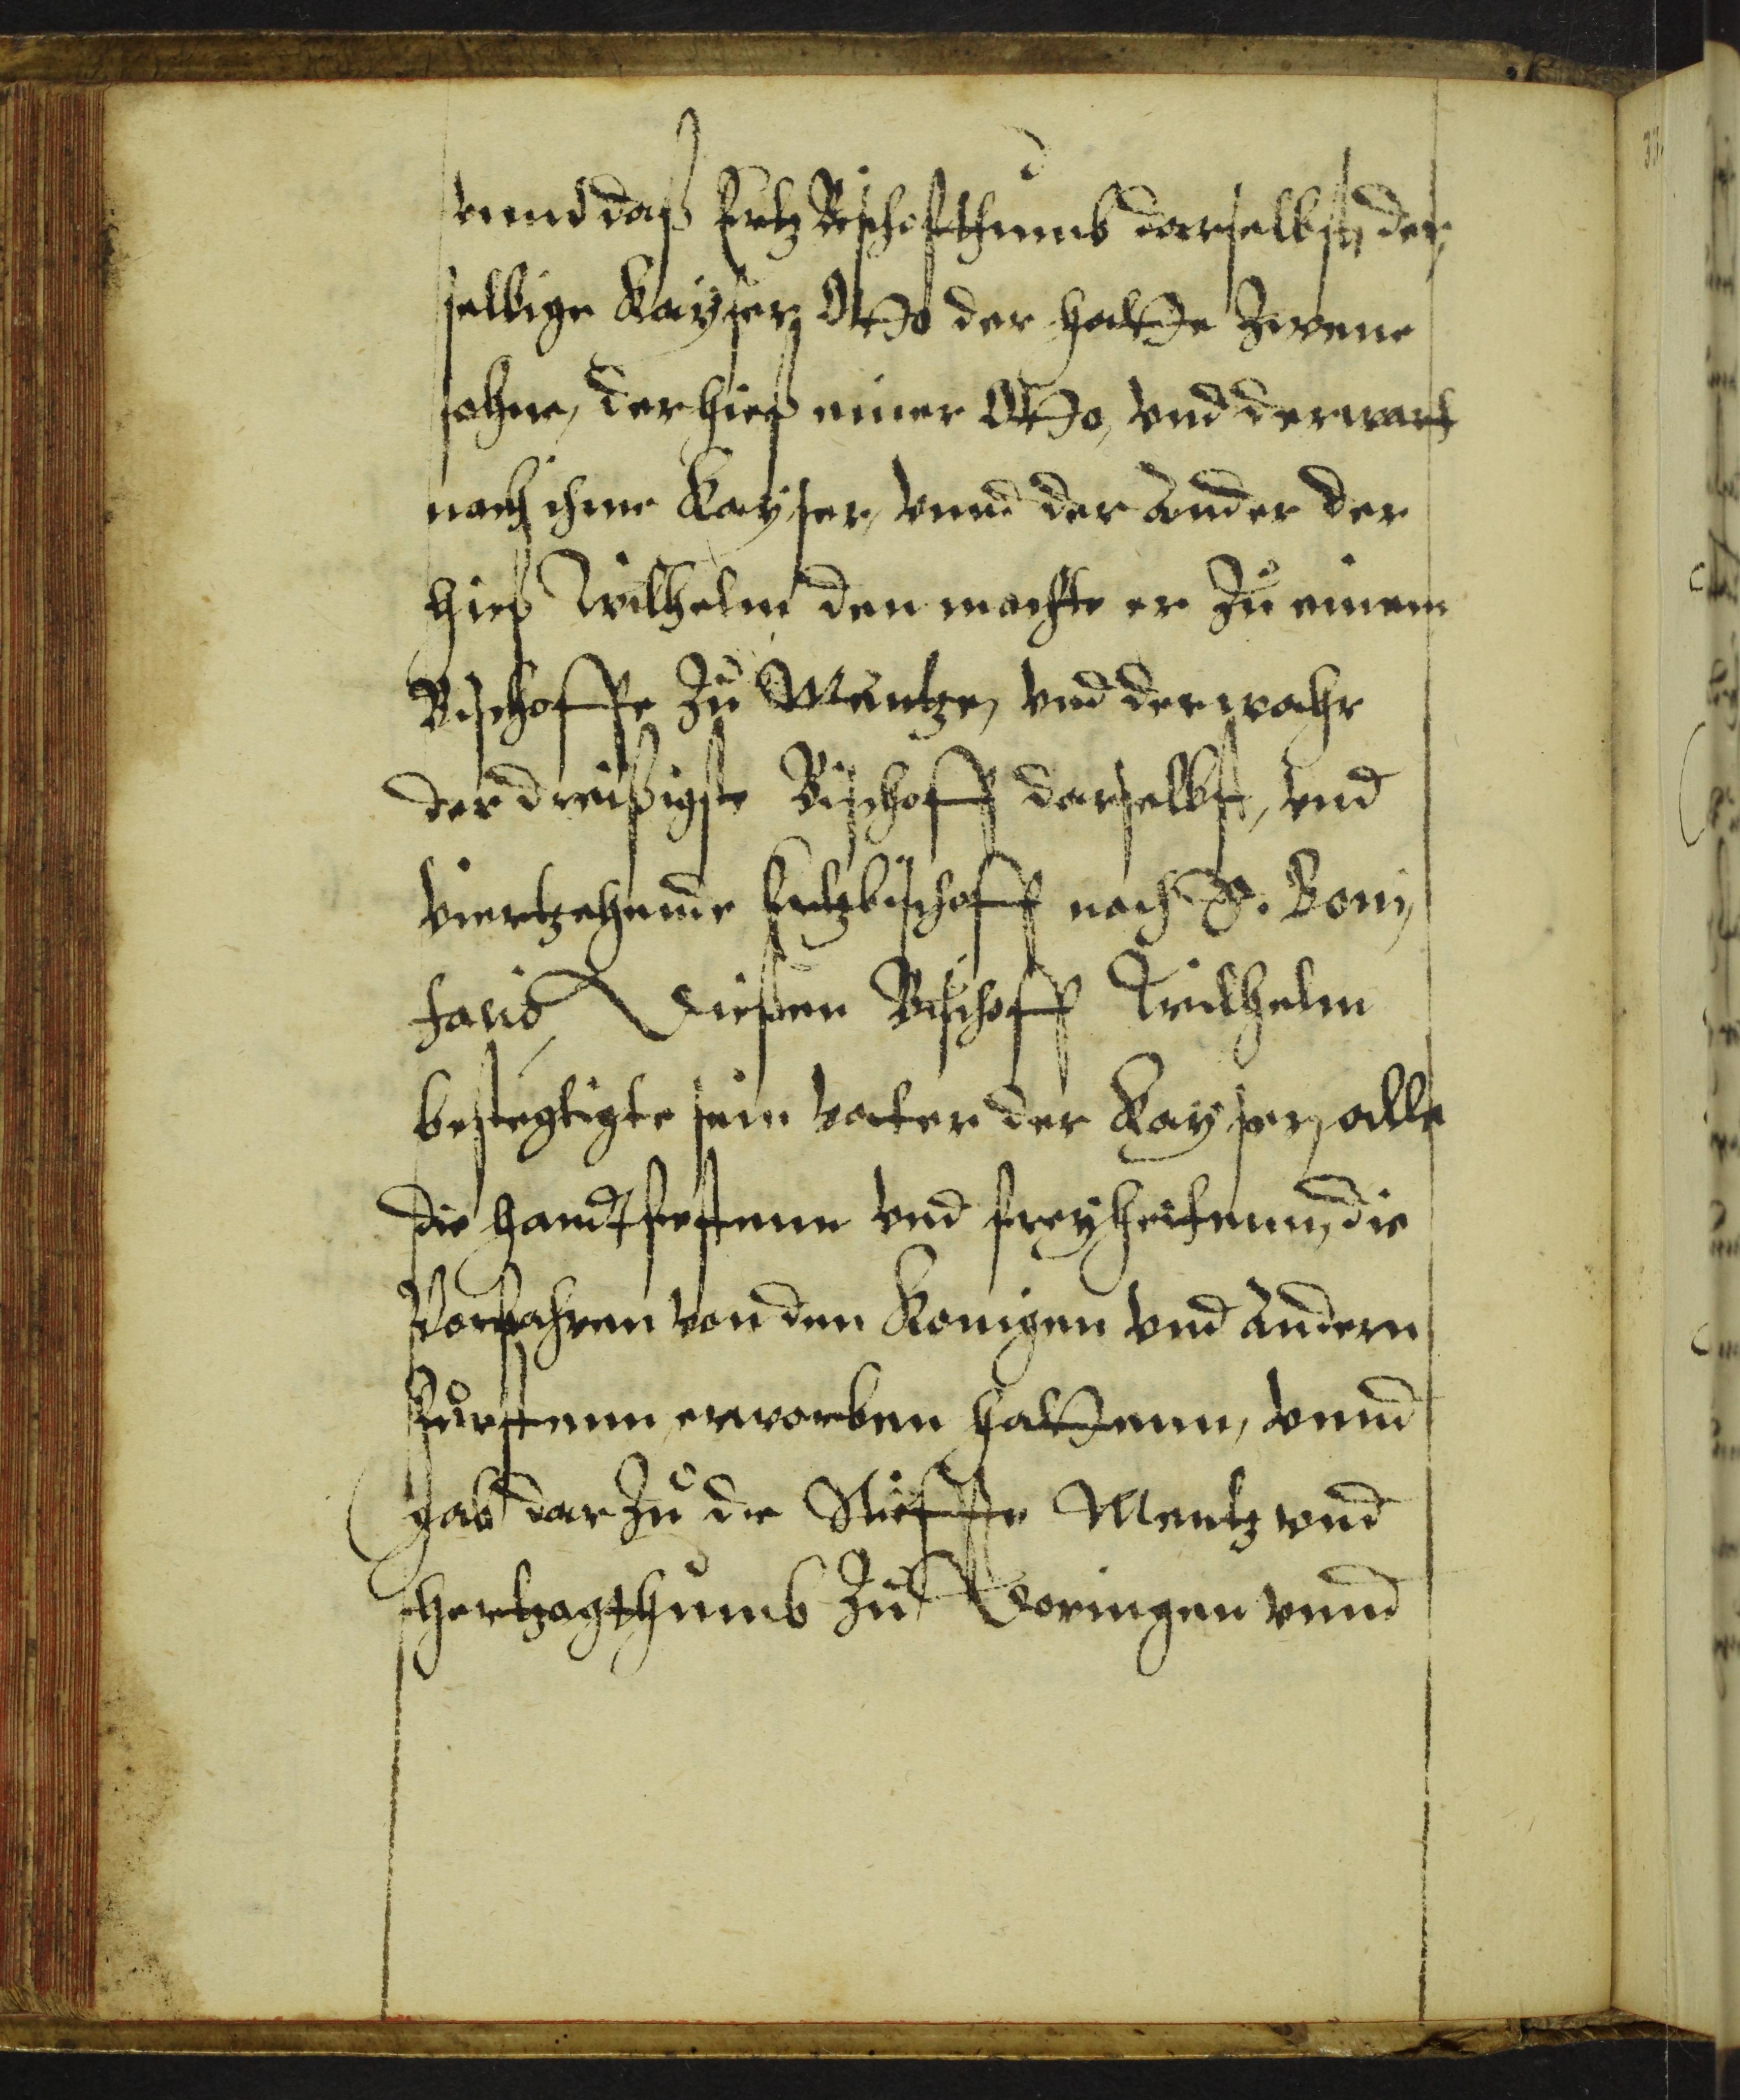 vnnd daß Ertz Bischofthumb darselbst, der
selbige Kayser Otto der hatte Zwene
sohne, der hieß einer Otto, vnd der wart
nach ihme Kayser, vnnd der ander der
hieß Wilhelm den machte er Zu einem
Bischoffe Zu Mentze, vnd der wahr
der dreißigste Bischoff darselbst, vnd
viertzehende Ertzbischoff nach S. Boni,
facio, Diesen Bischoff Wilhelm
bestegtigte sein vater der Kayser, alle
die handtfestenn vnd freyheitenn, die
Vorfahren von den Konigen vnd andern
Fürstenn erworben hattenn, vnnd
gab dar Zu die Stiffte Mentz vnd
Hertzogthumb Zu Doringen vnnd